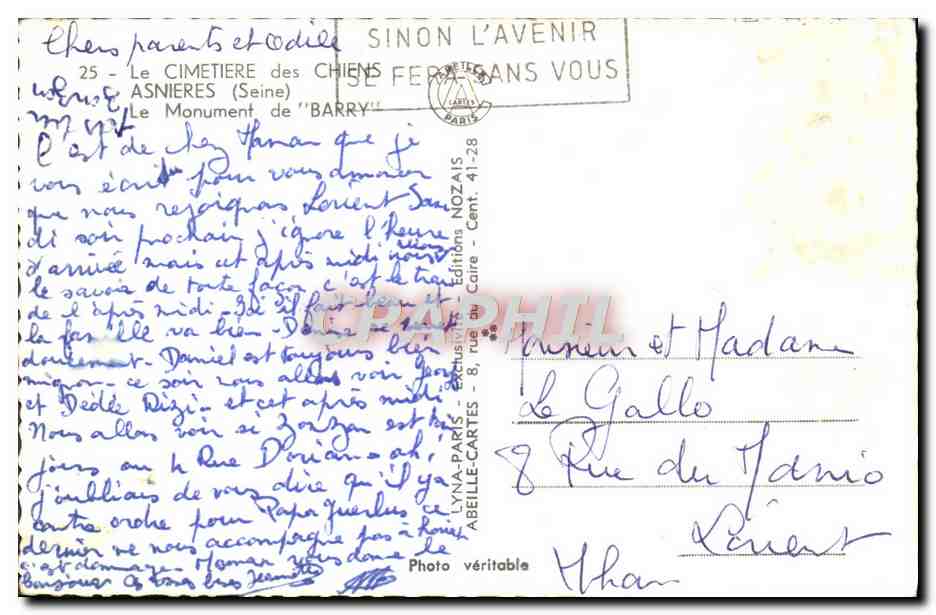 Chers parents et Odile
SINON L'AVENIR
SE FERA SANS VOUS
ABEILLE CARTES PARIS
25 - Le CIMETIERE des CHIENS
ASNIERES (Seine)
Le Monument de "BARRY"
C'est de chez Maman que je
vous écrit pour vous annoncer
que nous rejoignons Lorient Same
di soir prochain j'ignore l'heure
d'arrivée mais cet après midi nous
le savoir de toute façon c'est le train
de l'après midi - Ici il fait beau et
la famille va bien - Denise se remet
doucement - Daniel est toujours bien
mignon - ce soir nous allons voir Georges
et Dédée Rizi - et cet après midi
Nous allons voir si Zonzon est tou
jours au 4 Rue Dorian - ah!
j'oubliais de vous dire qu'il y a
contre ordre pour Papa ce
dernier ne nous accompagne pas à Lorient
c'est dommage - Maman vous donne le
bonjour à tous Jeannette
LYNA-PARIS - Exclusivité - Editions NOZAIS
ABEILLE-CARTES - 8, rue du Caire - Cent. 41-28
CPAPHIL
Monsieur et Madame
Le Gallo
8 Rue du Manio
Lorient
Mhan
Photo véritable